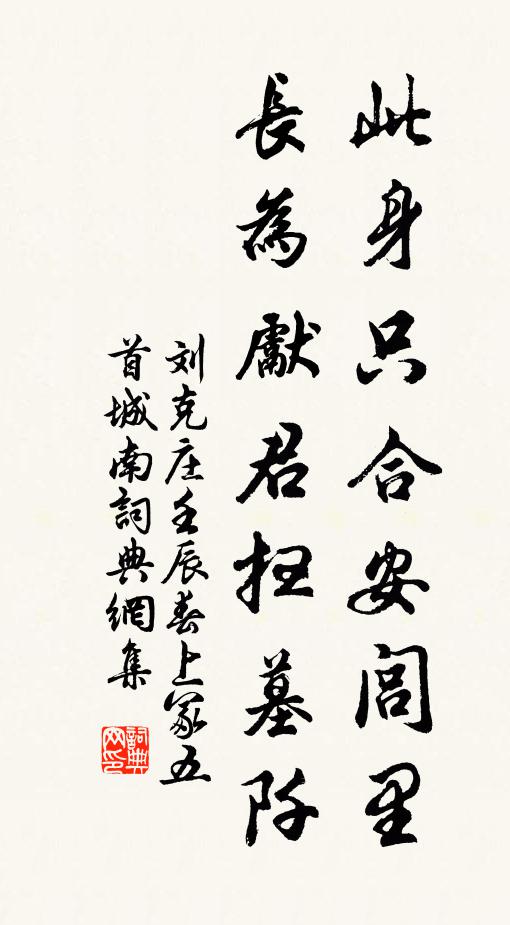 此身只合安閭里
長為獻君扫墓阡
刘克庄壬辰春上冢五
首城南詞典網集
詞典
网印